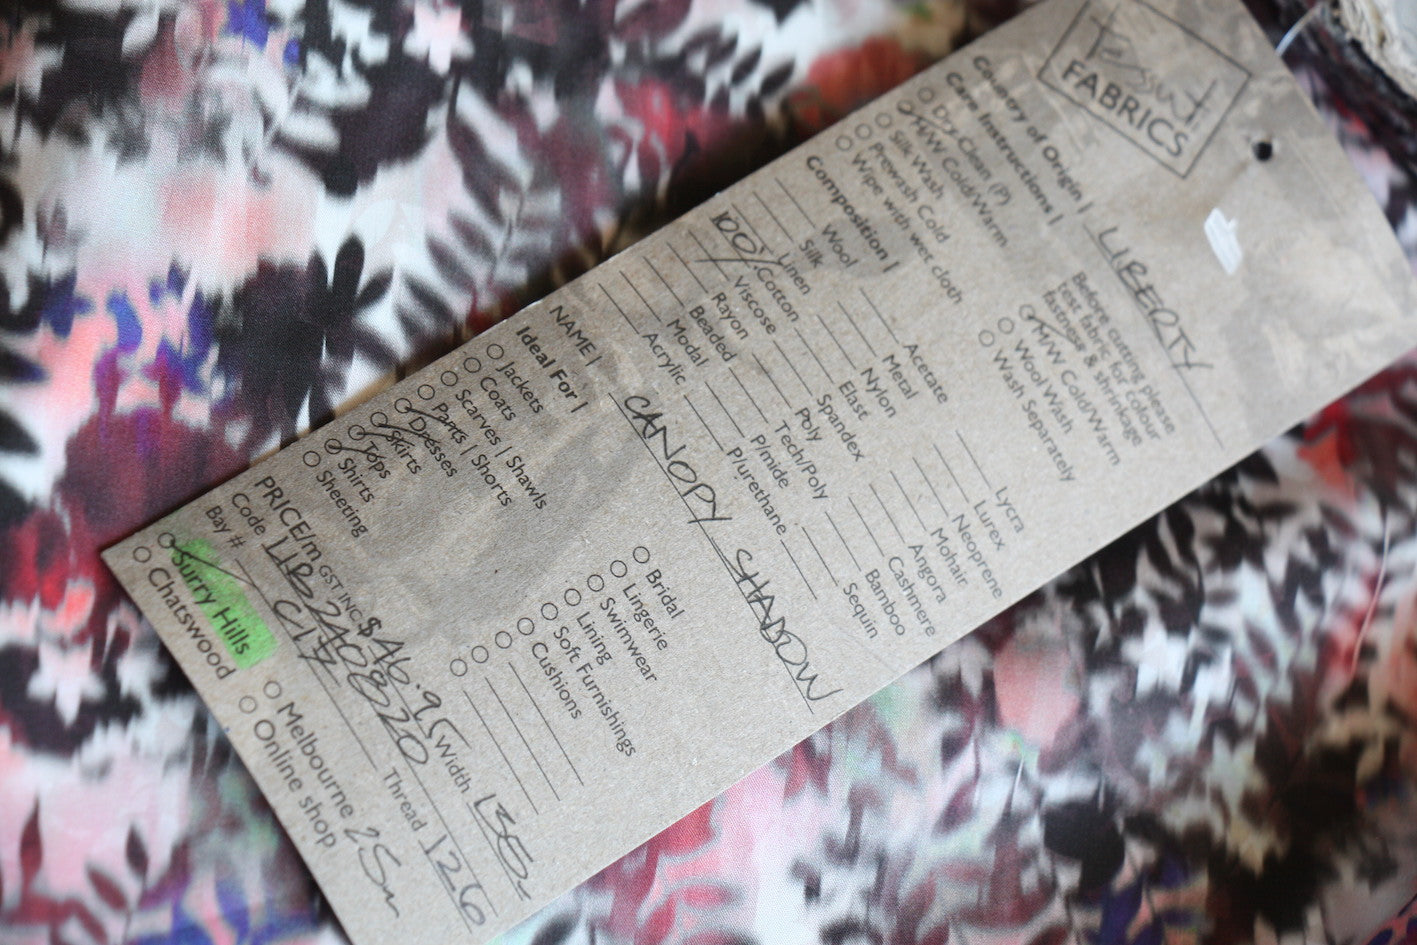 Tessuti
FABRICS
Country of Origin | LIBERTY
Care Instructions |
Dry Clean (P)
M/W Cold/Warm
Silk Wash
Prewash Cold
Wipe with wet cloth
Before cutting please
test fabric for colour
fastness & shrinkage
M/W Cold/Warm
Wool Wash
Wash Separately
Composition |
Wool
Silk
Linen
100% Cotton
Viscose
Rayon
Beaded
Modal
Acrylic
Acetate
Metal
Nylon
Elast
Spandex
Poly
Tech/Poly
P/mide
P/urethane
Lycra
Lurex
Neoprene
Mohair
Angora
Cashmere
Bamboo
Sequin
NAME | CANOPY SHADOW
Ideal For |
Jackets
Coats
Scarves | Shawls
Pants | Shorts
Dresses
Skirts
Tops
Shirts
Sheeting
Bridal
Lingerie
Swimwear
Lining
Soft Furnishings
Cushions
PRICE/m GST INC $46.95 Width 135-
Code LIB240820 Thread 126
Bay # C17 25m
Surry Hills
Chatswood
Melbourne
Online shop